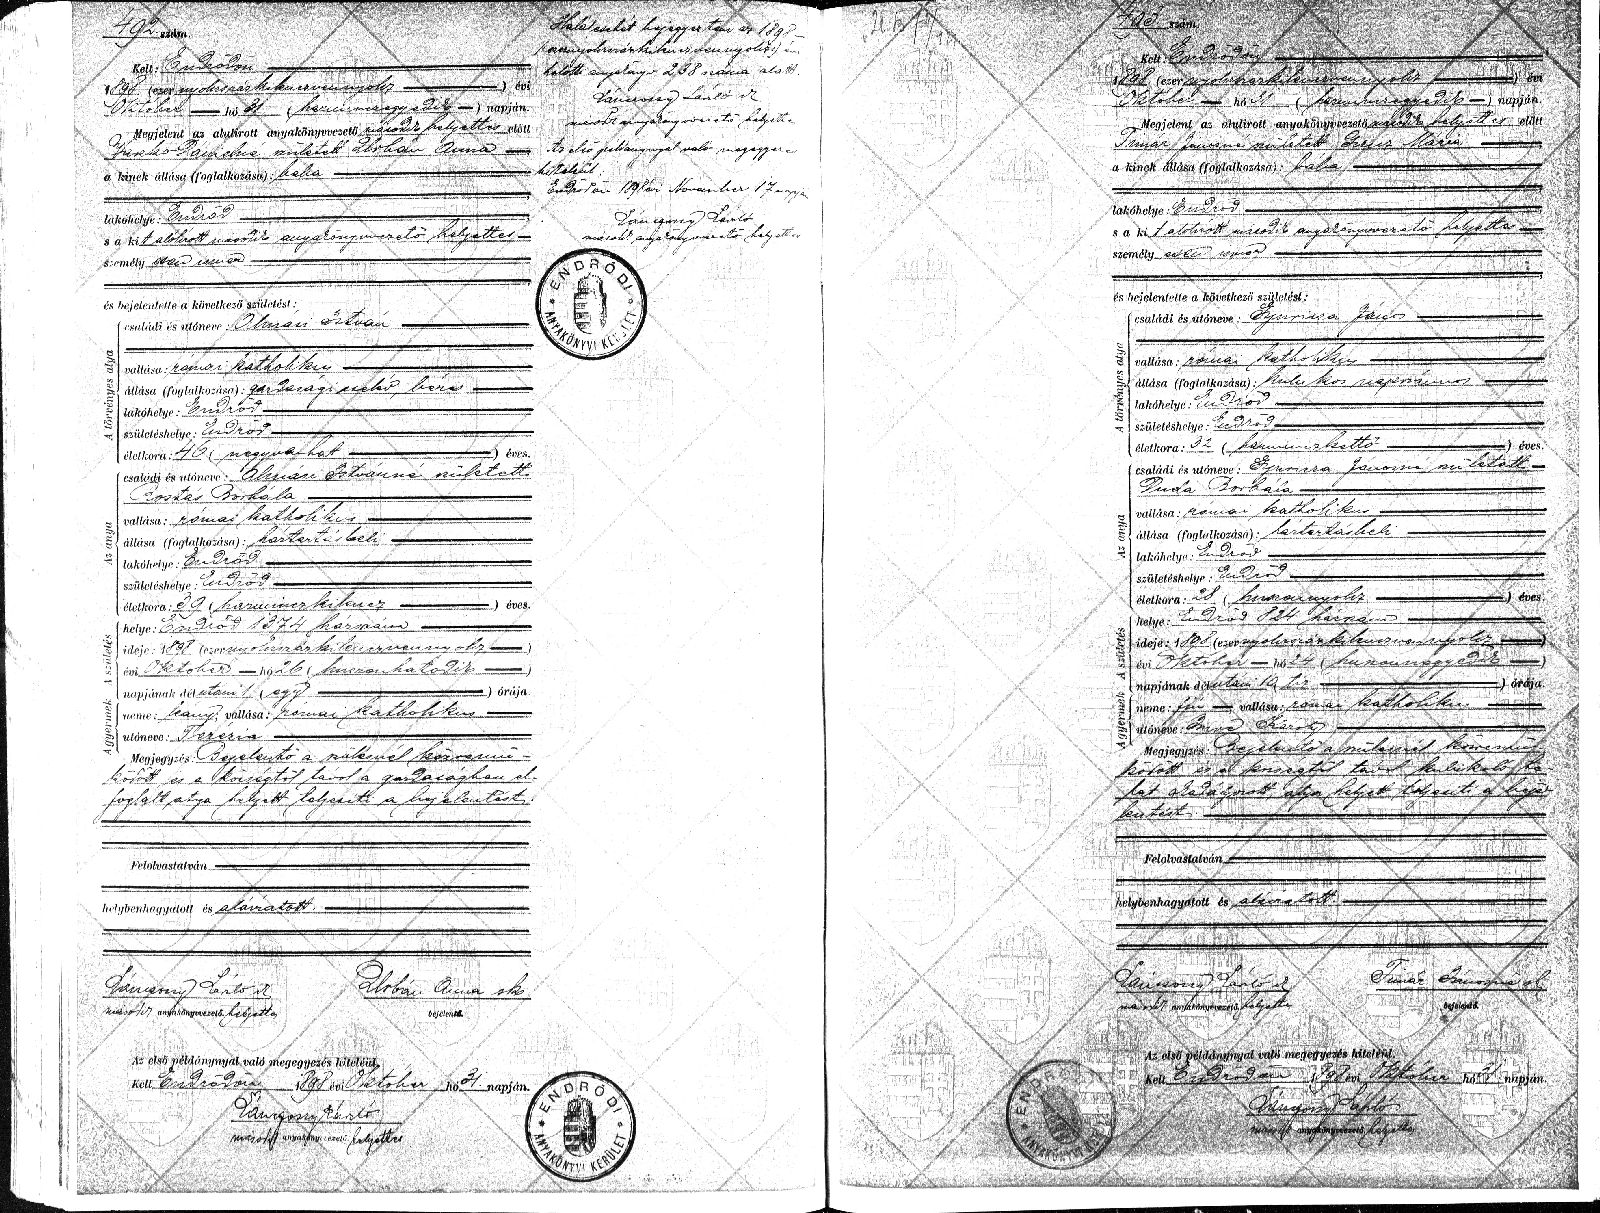 492 szám.
Kelt: Endrődön
1898 (ezernyolczszázkilenczvennyolcz) évi
Október hó 31 (harminczegyedik) napján.
Megjelent az alulirott anyakönyvezető második helyettes előtt
született Zlohán Anna
a kinek állása (foglalkozása): bába
lakóhelye: Endrőd
s a kit alólirott második anyakönyvvezető helyettes
személyesen ismer
és bejelentette a következő születést:
A törvényes atya
családi és utóneve: Olmási István
vallása: római katholikus
állása (foglalkozása): gazdasági cseléd, béres
lakóhelye: Endrőd
születéshelye: Endrőd
életkora: 46 (negyvenhat) éves.
Az anya
családi és utóneve: Olmási Istvánné született
Rostás Borbála
vallása: római katholikus
állása (foglalkozása): háztartásbeli
lakóhelye: Endrőd
születéshelye: Endrőd
életkora: 39 (harminczkilencz) éves.
A születés
helye: Endrőd 1374 házszám
ideje: 1898 (ezernyolczszázkilenczvennyolcz)
évi Október hó 26 (huszonhatodik)
napjának délutáni 1 (egy) órája.
A gyermek
neme: leány, vallása: római katholikus
utóneve: Terézia
Megjegyzés: Bejelentő a szülésnél közremű-
ködött és a községtől távol a gazdaságban el-
foglalt atya helyett teljesíti a bejelentést.
Felolvastatván
helybenhagyatott és aláíratott.
Lánczony László
második anyakönyvezető helyettes
Zlohán Anna sk
bejelentő.
Az első példánynyal való megegyezés hiteléül.
Kelt Endrődön 1898 évi Október hó 31 napján.
Lánczony László
második anyakönyvezető helyettes
ENDRŐDI ANYAKÖNYVI KERÜLET
Halálesetét bejegyeztem az 1898
(ezernyolczszázkilenczvennyolcz) évi
halotti anyakönyv 238 száma alatt.
Lánczony László
második anyakönyvvezető helyettes
Az első példánynyal való megegyezés
hiteléül.
Endrődön 1898 évi November 17 napján
Lánczony László
második anyakönyvvezető helyettes
ENDRŐDI ANYAKÖNYVI KERÜLET
493 szám.
Kelt: Endrődön
1898 (ezernyolczszázkilenczvennyolcz) évi
Október hó 31 (harminczegyedik) napján.
Megjelent az alulirott anyakönyvezető második helyettes előtt
Timár Jánosné született Mária
a kinek állása (foglalkozása): bába
lakóhelye: Endrőd
s a kit alólirott második anyakönyvvezető helyettes
személyesen ismer
és bejelentette a következő születést:
A törvényes atya
családi és utóneve: Gyuricza János
vallása: római katholikus
állása (foglalkozása): kubikos napszámos
lakóhelye: Endrőd
születéshelye: Endrőd
életkora: 32 (harminczkettő) éves.
Az anya
családi és utóneve: Gyuricza Jánosné született
Duda Borbála
vallása: római katholikus
állása (foglalkozása): háztartásbeli
lakóhelye: Endrőd
születéshelye: Endrőd
életkora: 28 (huszonnyolcz) éves.
A születés
helye: Endrőd 824 házszám
ideje: 1898 (ezernyolczszázkilenczvennyolcz)
évi Október hó 24 (huszonnegyedik)
napjának délutáni 10 tíz) órája.
A gyermek
neme: fiú vallása: római katholikus
utóneve: Imre Károly
Megjegyzés: Bejelentő a szülésnél közremű-
ködött és a községtől távol kubikoló
akadályozott atya helyett teljesíti a beje-
lentést.
Felolvastatván
helybenhagyatott és aláíratott.
Lánczony László
második anyakönyvezető helyettes
Timár Jánosné sk
bejelentő.
Az első példánynyal való megegyezés hiteléül.
Kelt Endrődön 1898 évi Október hó 31 napján.
Lánczony László
második anyakönyvezető helyettes
ENDRŐDI ANYAKÖNYVI KERÜLET